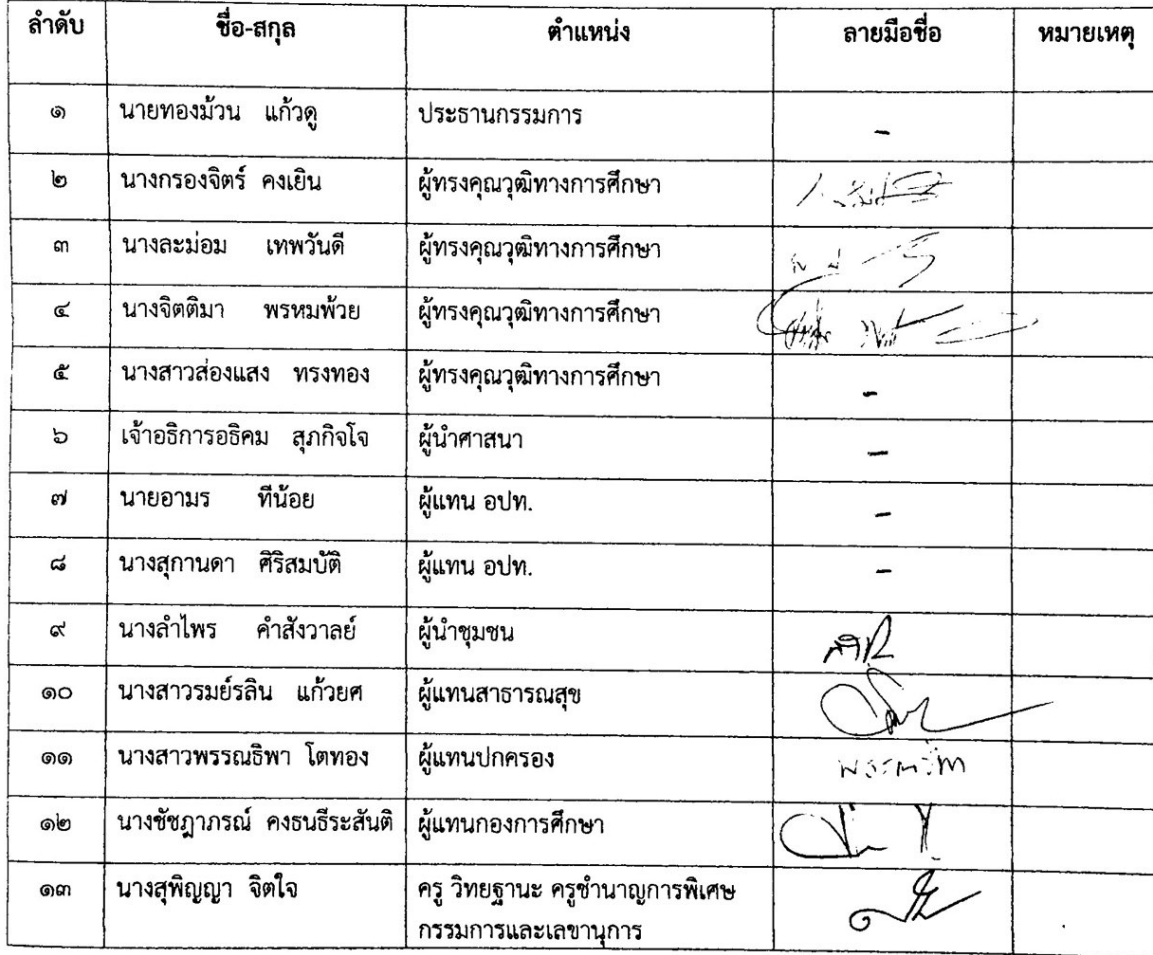 ลำดับ ชื่อ-สกุล ตำแหน่ง ลายมือชื่อ หมายเหตุ
๑ นายทองม้วน แก้วดู ประธานกรรมการ -
๒ นางกรองจิตร์ คงเยิน ผู้ทรงคุณวุฒิทางการศึกษา
๓ นางละม่อม เทพวันดี ผู้ทรงคุณวุฒิทางการศึกษา
๔ นางจิตติมา พรหมพ้วย ผู้ทรงคุณวุฒิทางการศึกษา
๕ นางสาวส่องแสง ทรงทอง ผู้ทรงคุณวุฒิทางการศึกษา -
๖ เจ้าอธิการอธิคม สุภกิจโจ ผู้นำศาสนา -
๗ นายอามร ทีน้อย ผู้แทน อปท. -
๘ นางสุกานดา ศิริสมบัติ ผู้แทน อปท. -
๙ นางลำไพร คำสังวาลย์ ผู้นำชุมชน
๑๐ นางสาวรมย์รลิน แก้วยศ ผู้แทนสาธารณสุข
๑๑ นางสาวพรรณธิพา โตทอง ผู้แทนปกครอง
๑๒ นางชัชฎาภรณ์ คงธนธีระสันติ ผู้แทนกองการศึกษา
๑๓ นางสุพิญญา จิตใจ ครู วิทยฐานะ ครูชำนาญการพิเศษ
กรรมการและเลขานุการ